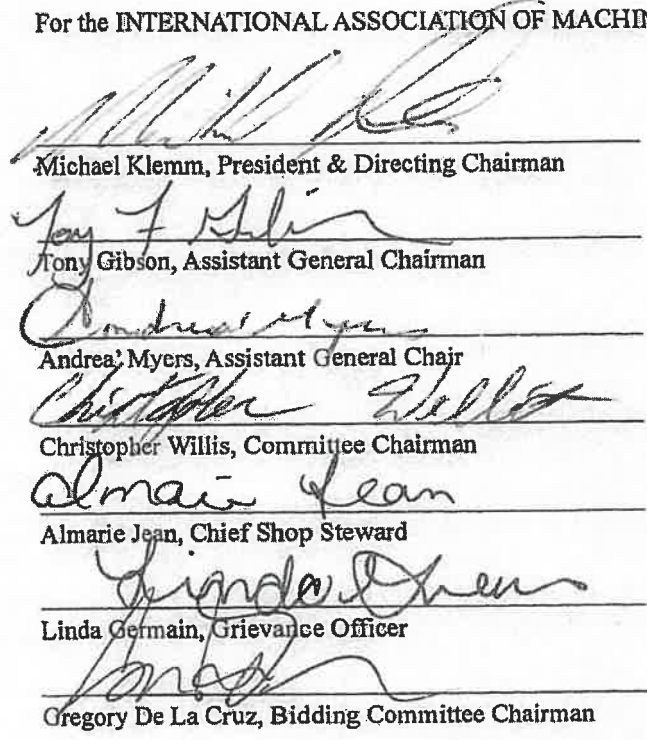 For the INTERNATIONAL ASSOCIATION OF MACHIN
Michael Klemm, President & Directing Chairman
Tony F
Tony Gibson, Assistant General Chairman
Andrea' Myers
Andrea' Myers, Assistant General Chair
Christopher Willis
Christopher Willis, Committee Chairman
Almarie Jean
Almarie Jean, Chief Shop Steward
Linda
Linda Germain, Grievance Officer
Gregory De La Cruz, Bidding Committee Chairman